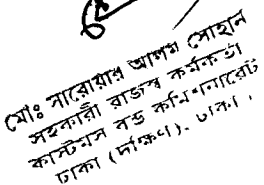 মোঃ সারোয়ার আলম সোহান
সহকারী রাজস্ব কর্মকর্তা
কাস্টমস বন্ড কমিশনারেট
ঢাকা (দক্ষিণ). ঢাকা।